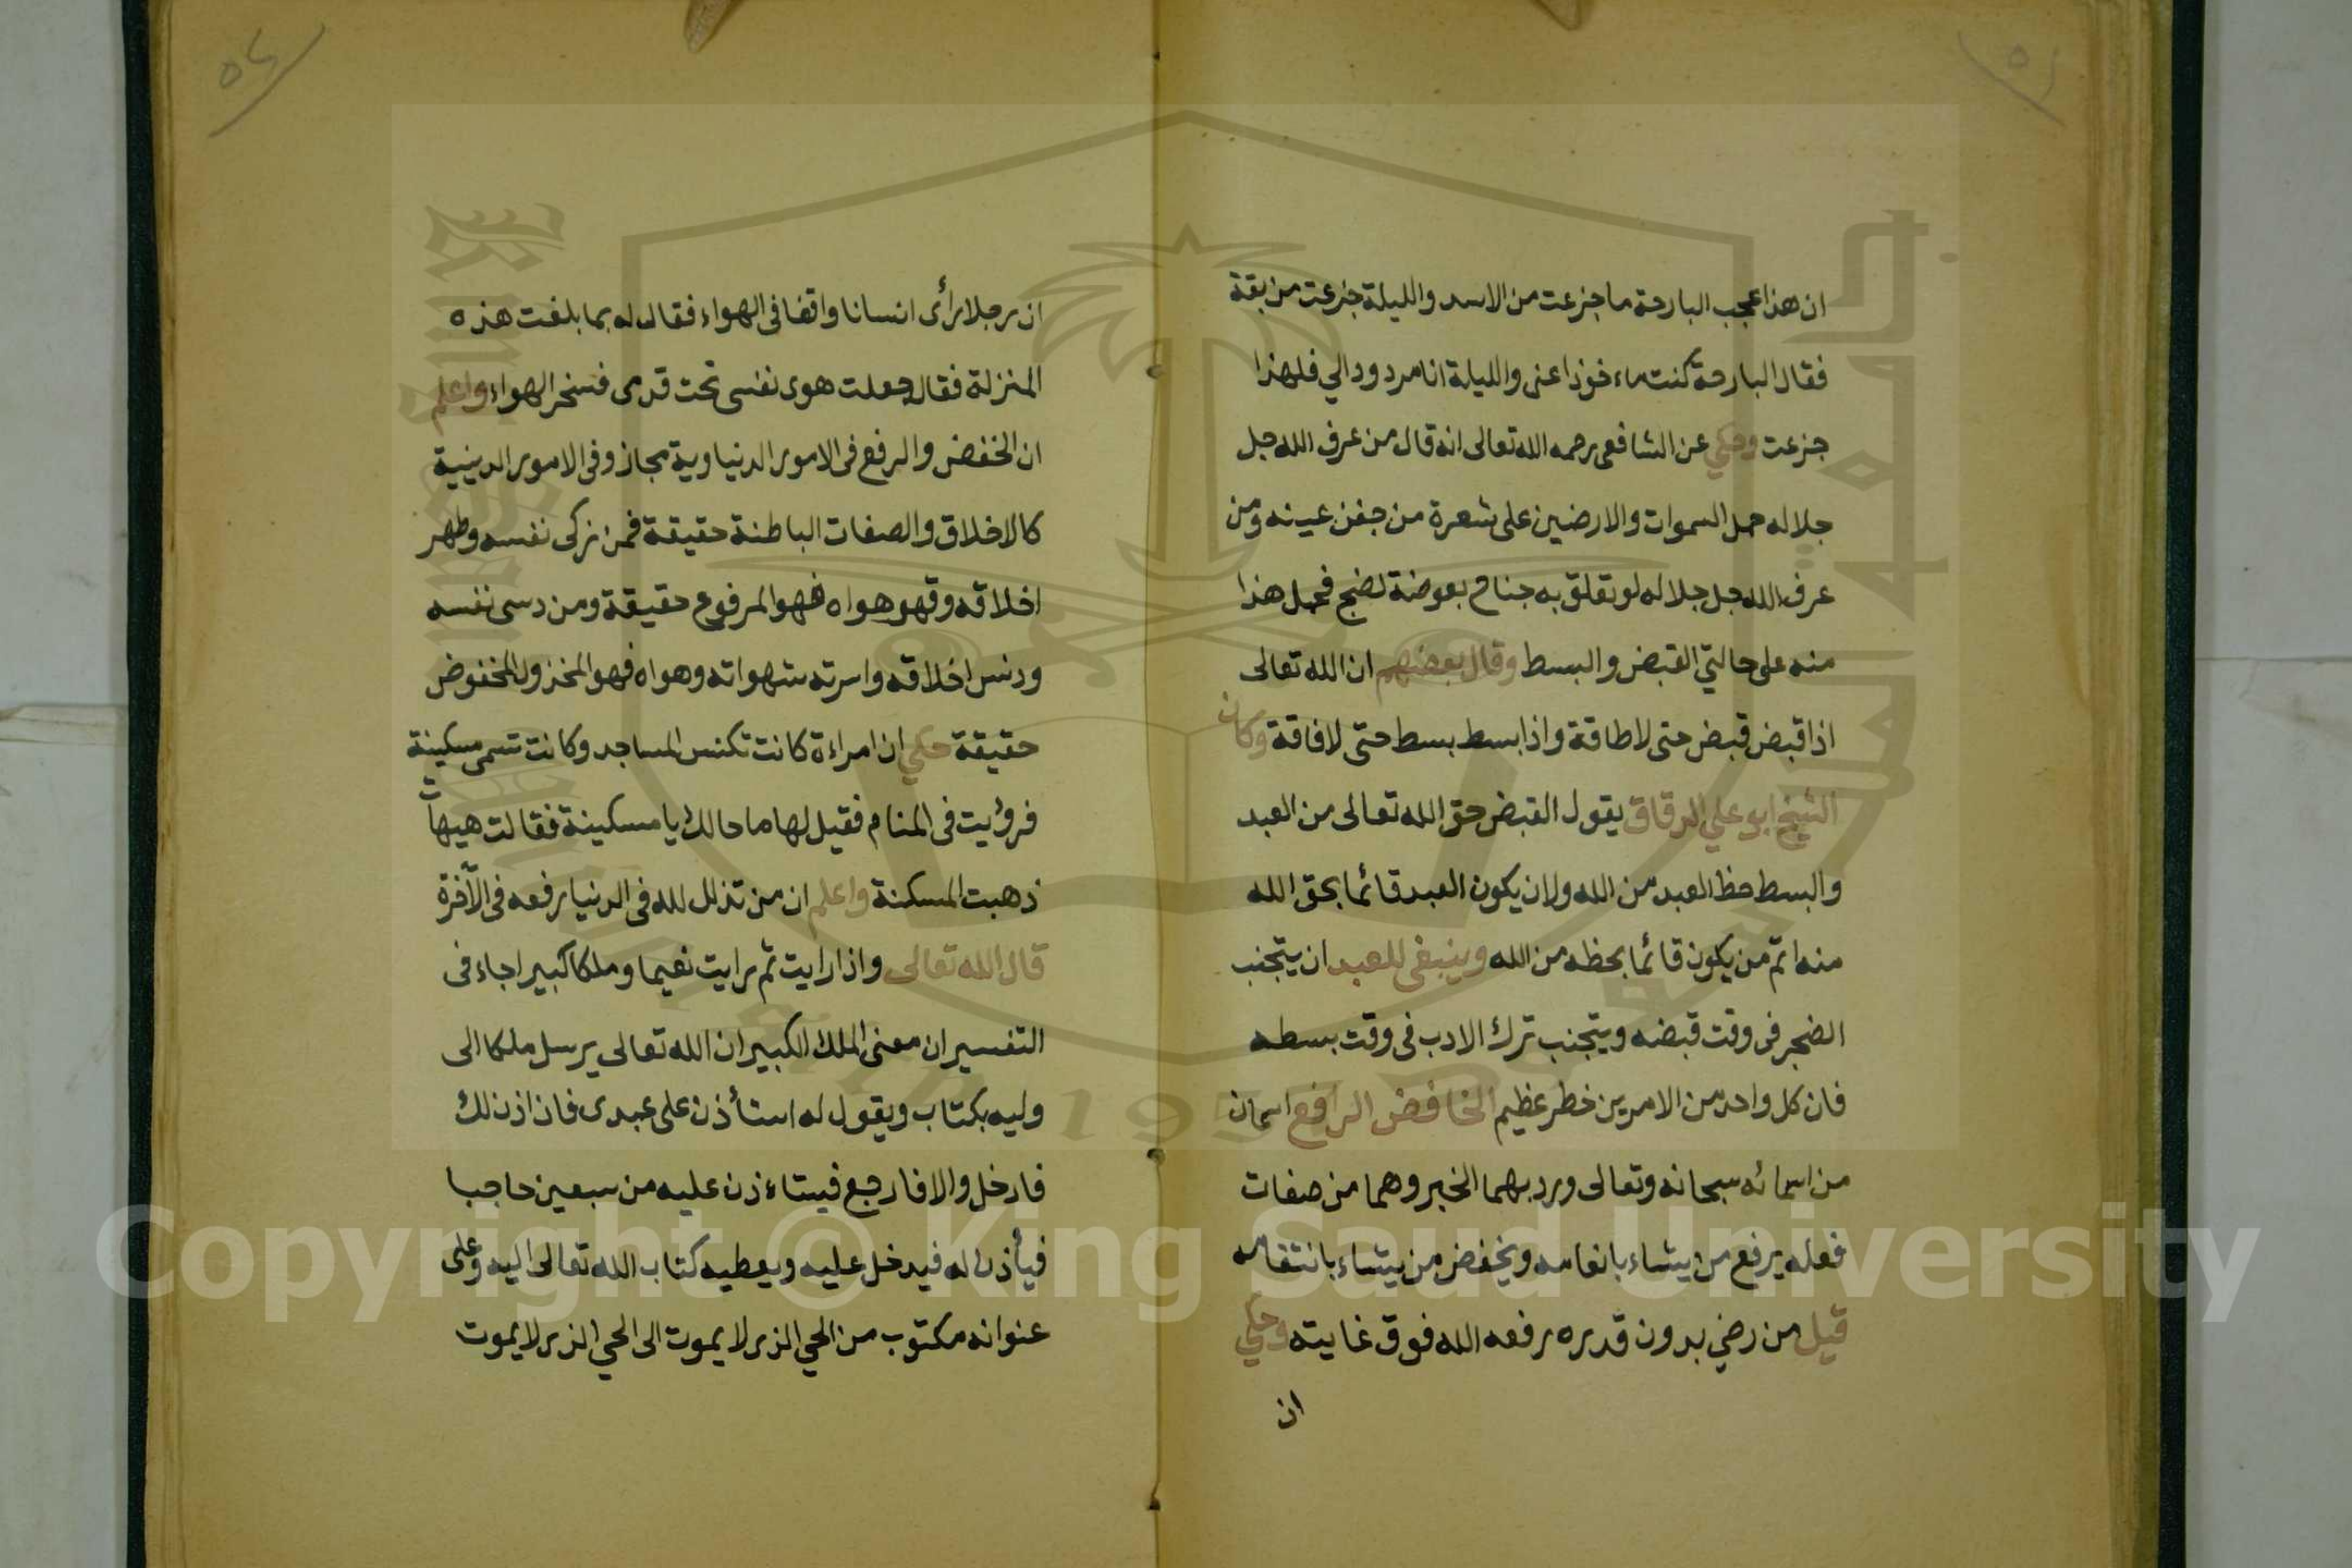 ان هذا عجب البارحة ما جزعت من الاسد والليلة جزعت من بقة
فقال البارحة كنت ماءخوذا عنى والليلة انا مردود الي فلهذا
جزعت وحكي عن الشافعى رحمه الله تعالى انه قال من عرف الله جل
جلاله حمل السموات والارضين على شعرة من جفن عينه ومن
عرف الله جل جلاله لو تعلق به جناح بعوضة لضج فحمل هذا
منه على حالتي القبض والبسط وقال بعضهم ان الله تعالى
اذا قبض قبض حتى لا طاقة واذا بسط بسط حتى لا فاقة وكان
الشيخ ابو علي الدقاق يقول القبض حق الله تعالى من العبد
والبسط حظ العبد من الله ولان يكون العبد قائما بحق الله
منه اتم من يكون قائما بحظه من الله وينبغى للعبد ان يتجنب
الضجر فى وقت قبضه ويتجنب ترك الادب فى وقت بسطه
فان كل واحد من الامرين خطر عظيم الخافض الرافع اسمان
من اسمائه سبحانه وتعالى ورد بهما الخبر وهما من صفات
فعله يرفع من يشاء بانعامه ويخفض من يشاء بانتقامه
قيل من رضي بدون قدره رفعه الله فوق غايته وحكي
ان
ان رجلا رأى انسانا واقفا فى الهواء فقال له بما بلغت هذه
المنزلة فقال جعلت هوى نفسى تحت قدمى فسخر الهواء واعلم
ان الخفض والرفع فى الامور الدنياوية مجاز وفى الامور الدينية
كالاخلاق والصفات الباطنة حقيقة فمن زكى نفسه وطهر
اخلاقه وقهو هواه فهو المرفوع حقيقة ومن دسى نفسه
ودنس اخلاقه واسرته شهواته وهواه فهو المخذول المخفوض
حقيقة حكي ان امراءة كانت تكنس المساجد وكانت تسمى مسكينة
فرؤيت فى المنام فقيل لها ما حالك يا مسكينة فقالت هيهات
ذهبت المسكنة واعلم ان من تذلل لله فى الدنيا رفعه فى الآخرة
قال الله تعالى واذا رايت ثم رايت نعيما وملكا كبيرا جاء فى
التفسير ان معنى الملك الكبير ان الله تعالى يرسل ملكا الى
وليه بكتاب ويقول له استأذن على عبدى فان اذن لك
فادخل والا فارجع فيستاءذن عليه من سبعين حاجبا
فيأذن له فيدخل عليه ويعطيه كتاب الله تعالى اليه وعلى
عنوانه مكتوب من الحي الذى لا يموت الى الحي الذى لا يموت
Copyright © King Saud University